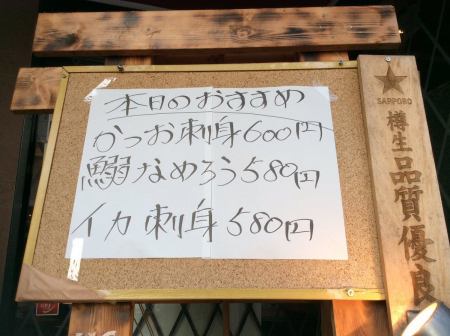 本日のおすすめ
かつお刺身600円
鰯なめろう580円
イカ刺身580円
SAPPORO
樽生品質優良